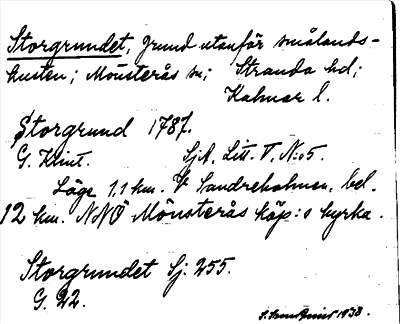 Storgrundet, grund utanför smålands-
kusten; Mönsterås sn; Stranda hd;
Kalmar l.
Storgrund 1787.
G. Klint. Sj.A. Litt. V. N:o5.
Läge 1,1 km. V Sandreholmen, bel.
12 km. NNÖ Mönsterås köp:s kyrka.
Storgrundet Sj. 255.
G. 22.
1938.